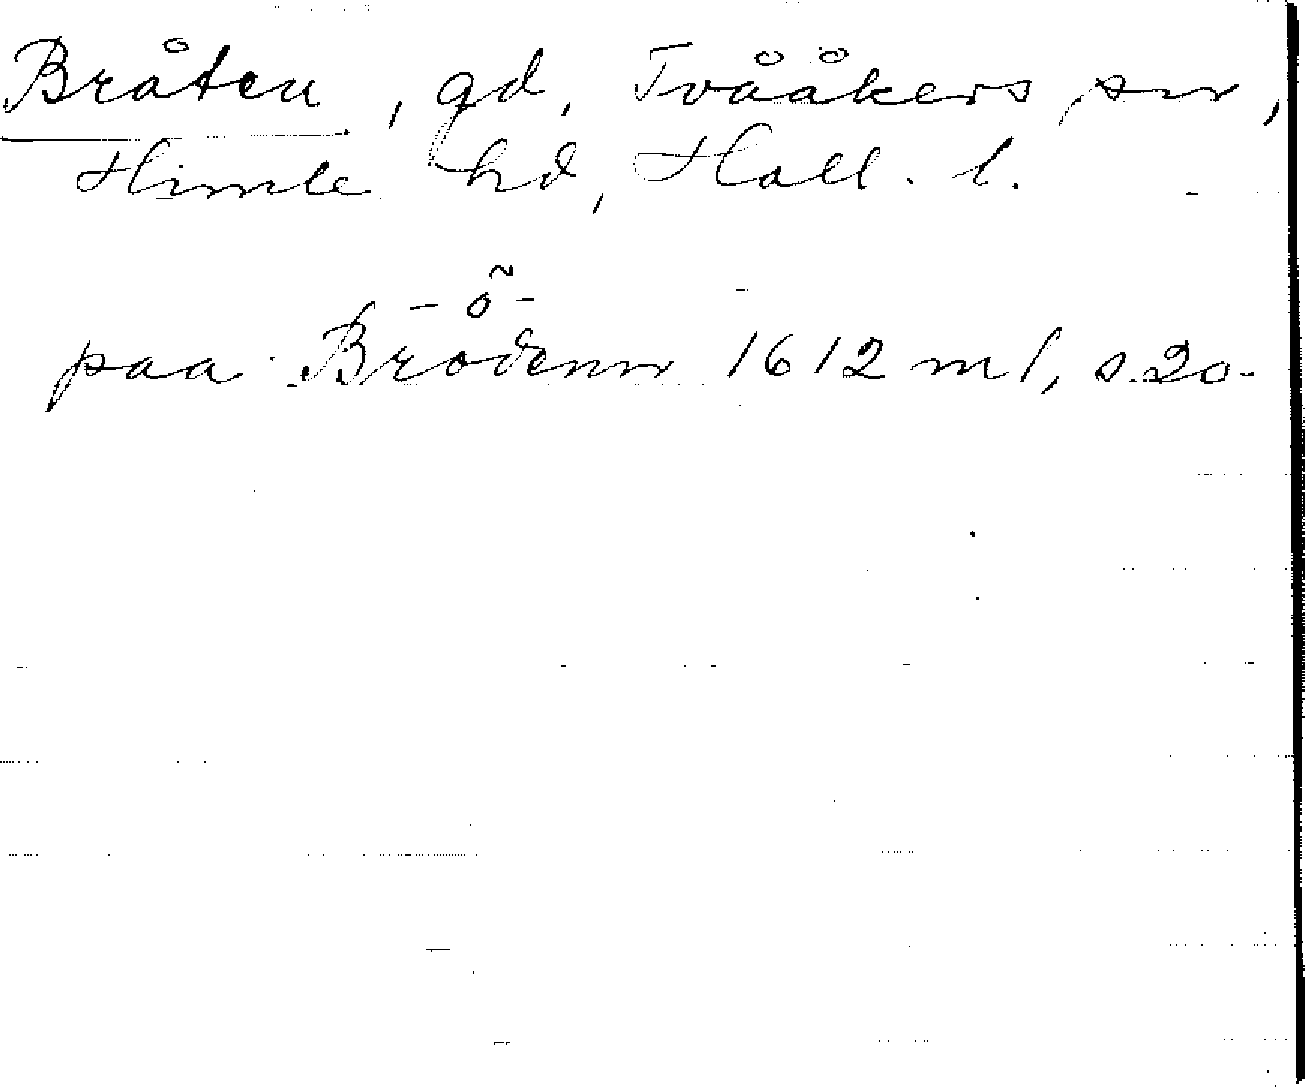 Bråten, gd, Tvååkers sn,
Himle hd, Hall. l.
- õ -
paa Brodenn 1612 ml, s. 20.